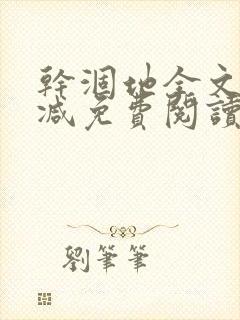 幹涸地全文
減免費閱讀
劉筆筆